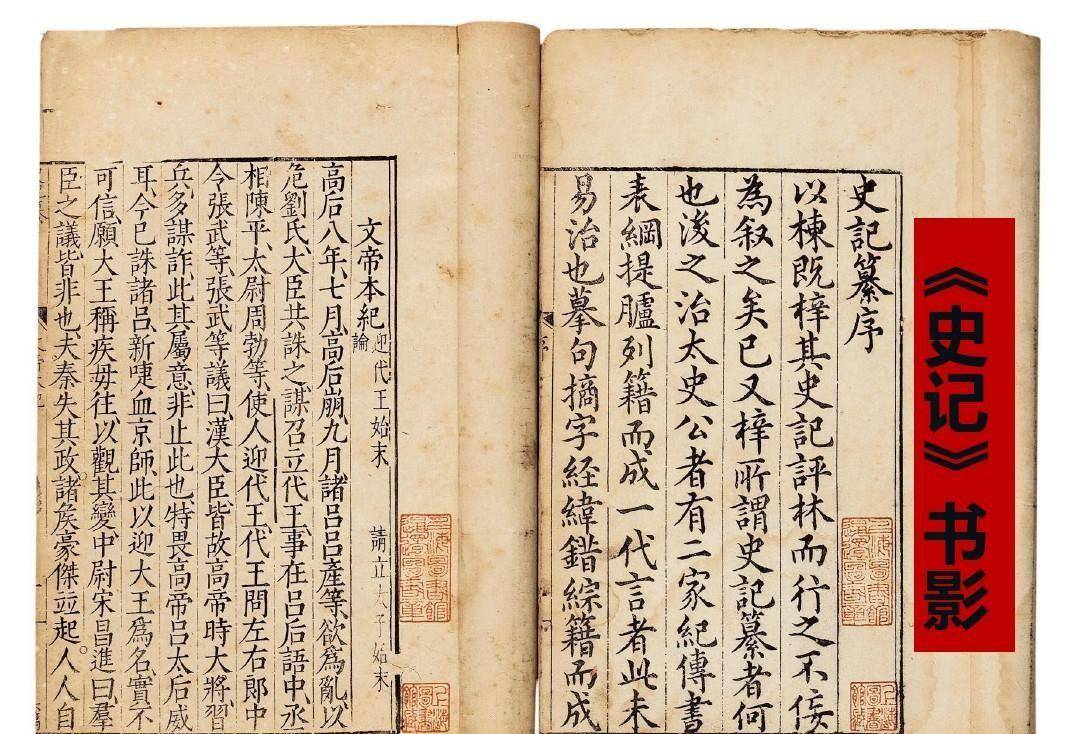 《史记》书影
史記纂序
以棟既梓其史記評林而行之不佞
為叙之矣已又梓所謂史記纂者何
也浚之治太史公者有二家紀傳書
表綱提臚列籍而成一代言者此未
易治也摹句摘字経緯錯綜籍而成
序
文帝本紀 迎代王始末 請立太子始末
論
高后八年、七月、高后崩、九月諸呂呂產等、欲爲亂、以
危劉氏、大臣共誅之、謀召立代王、事在呂后語中、丞
相陳平、太尉周勃等、使人迎代王、代王問左右郎中
令張武等、張武等議曰、漢大臣、皆故高帝時大將、習
兵、多謀詐、此其屬意非止此也、特畏高帝呂太后威
耳、今已誅諸呂、新啑血京師、此以迎大王爲名、實不
可信、願大王稱疾毋往、以觀其變、中尉宋昌進曰、羣
臣之議皆非也、夫秦失其政、諸矦豪傑竝起。人人自